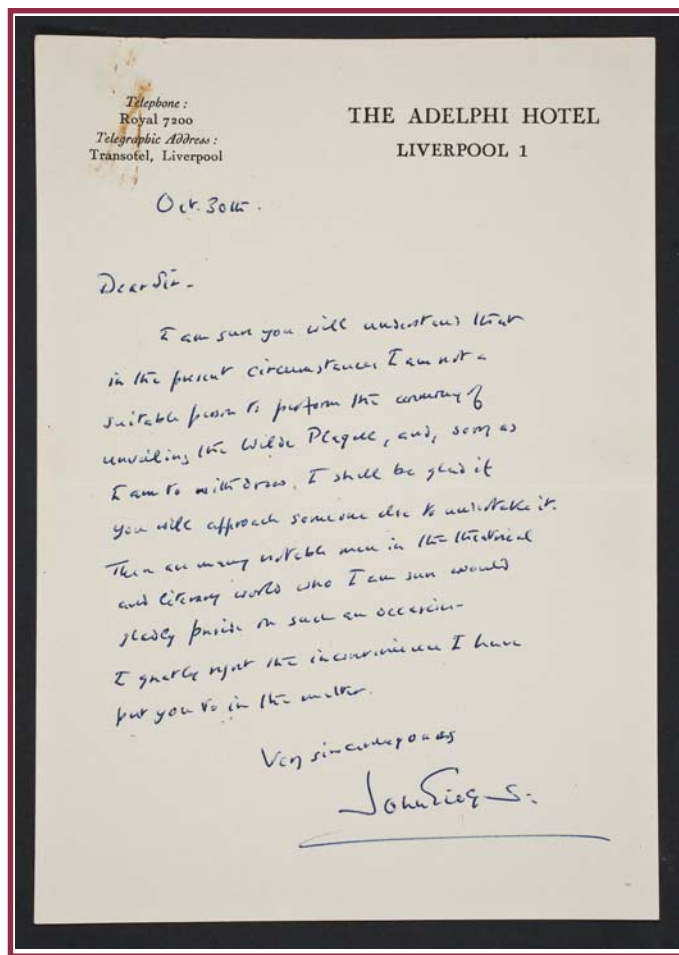 Telephone :
Royal 7200
Telegraphic Address :
Transotel, Liverpool
THE ADELPHI HOTEL
LIVERPOOL 1
Oct. 30th.
Dear Sir -
I am sure you will understand that
in the present circumstances I am not a
suitable person to perform the ceremony of
unveiling the Wilde Plaque, and, sorry as
I am to withdraw, I shall be glad if
you will approach someone else to undertake it.
There are many notable men in the theatrical
and literary world who I am sure would
gladly preside on such an occasion -
I greatly regret the inconvenience I have
put you to in the matter.
Very sincerely yours
John Gielgud.